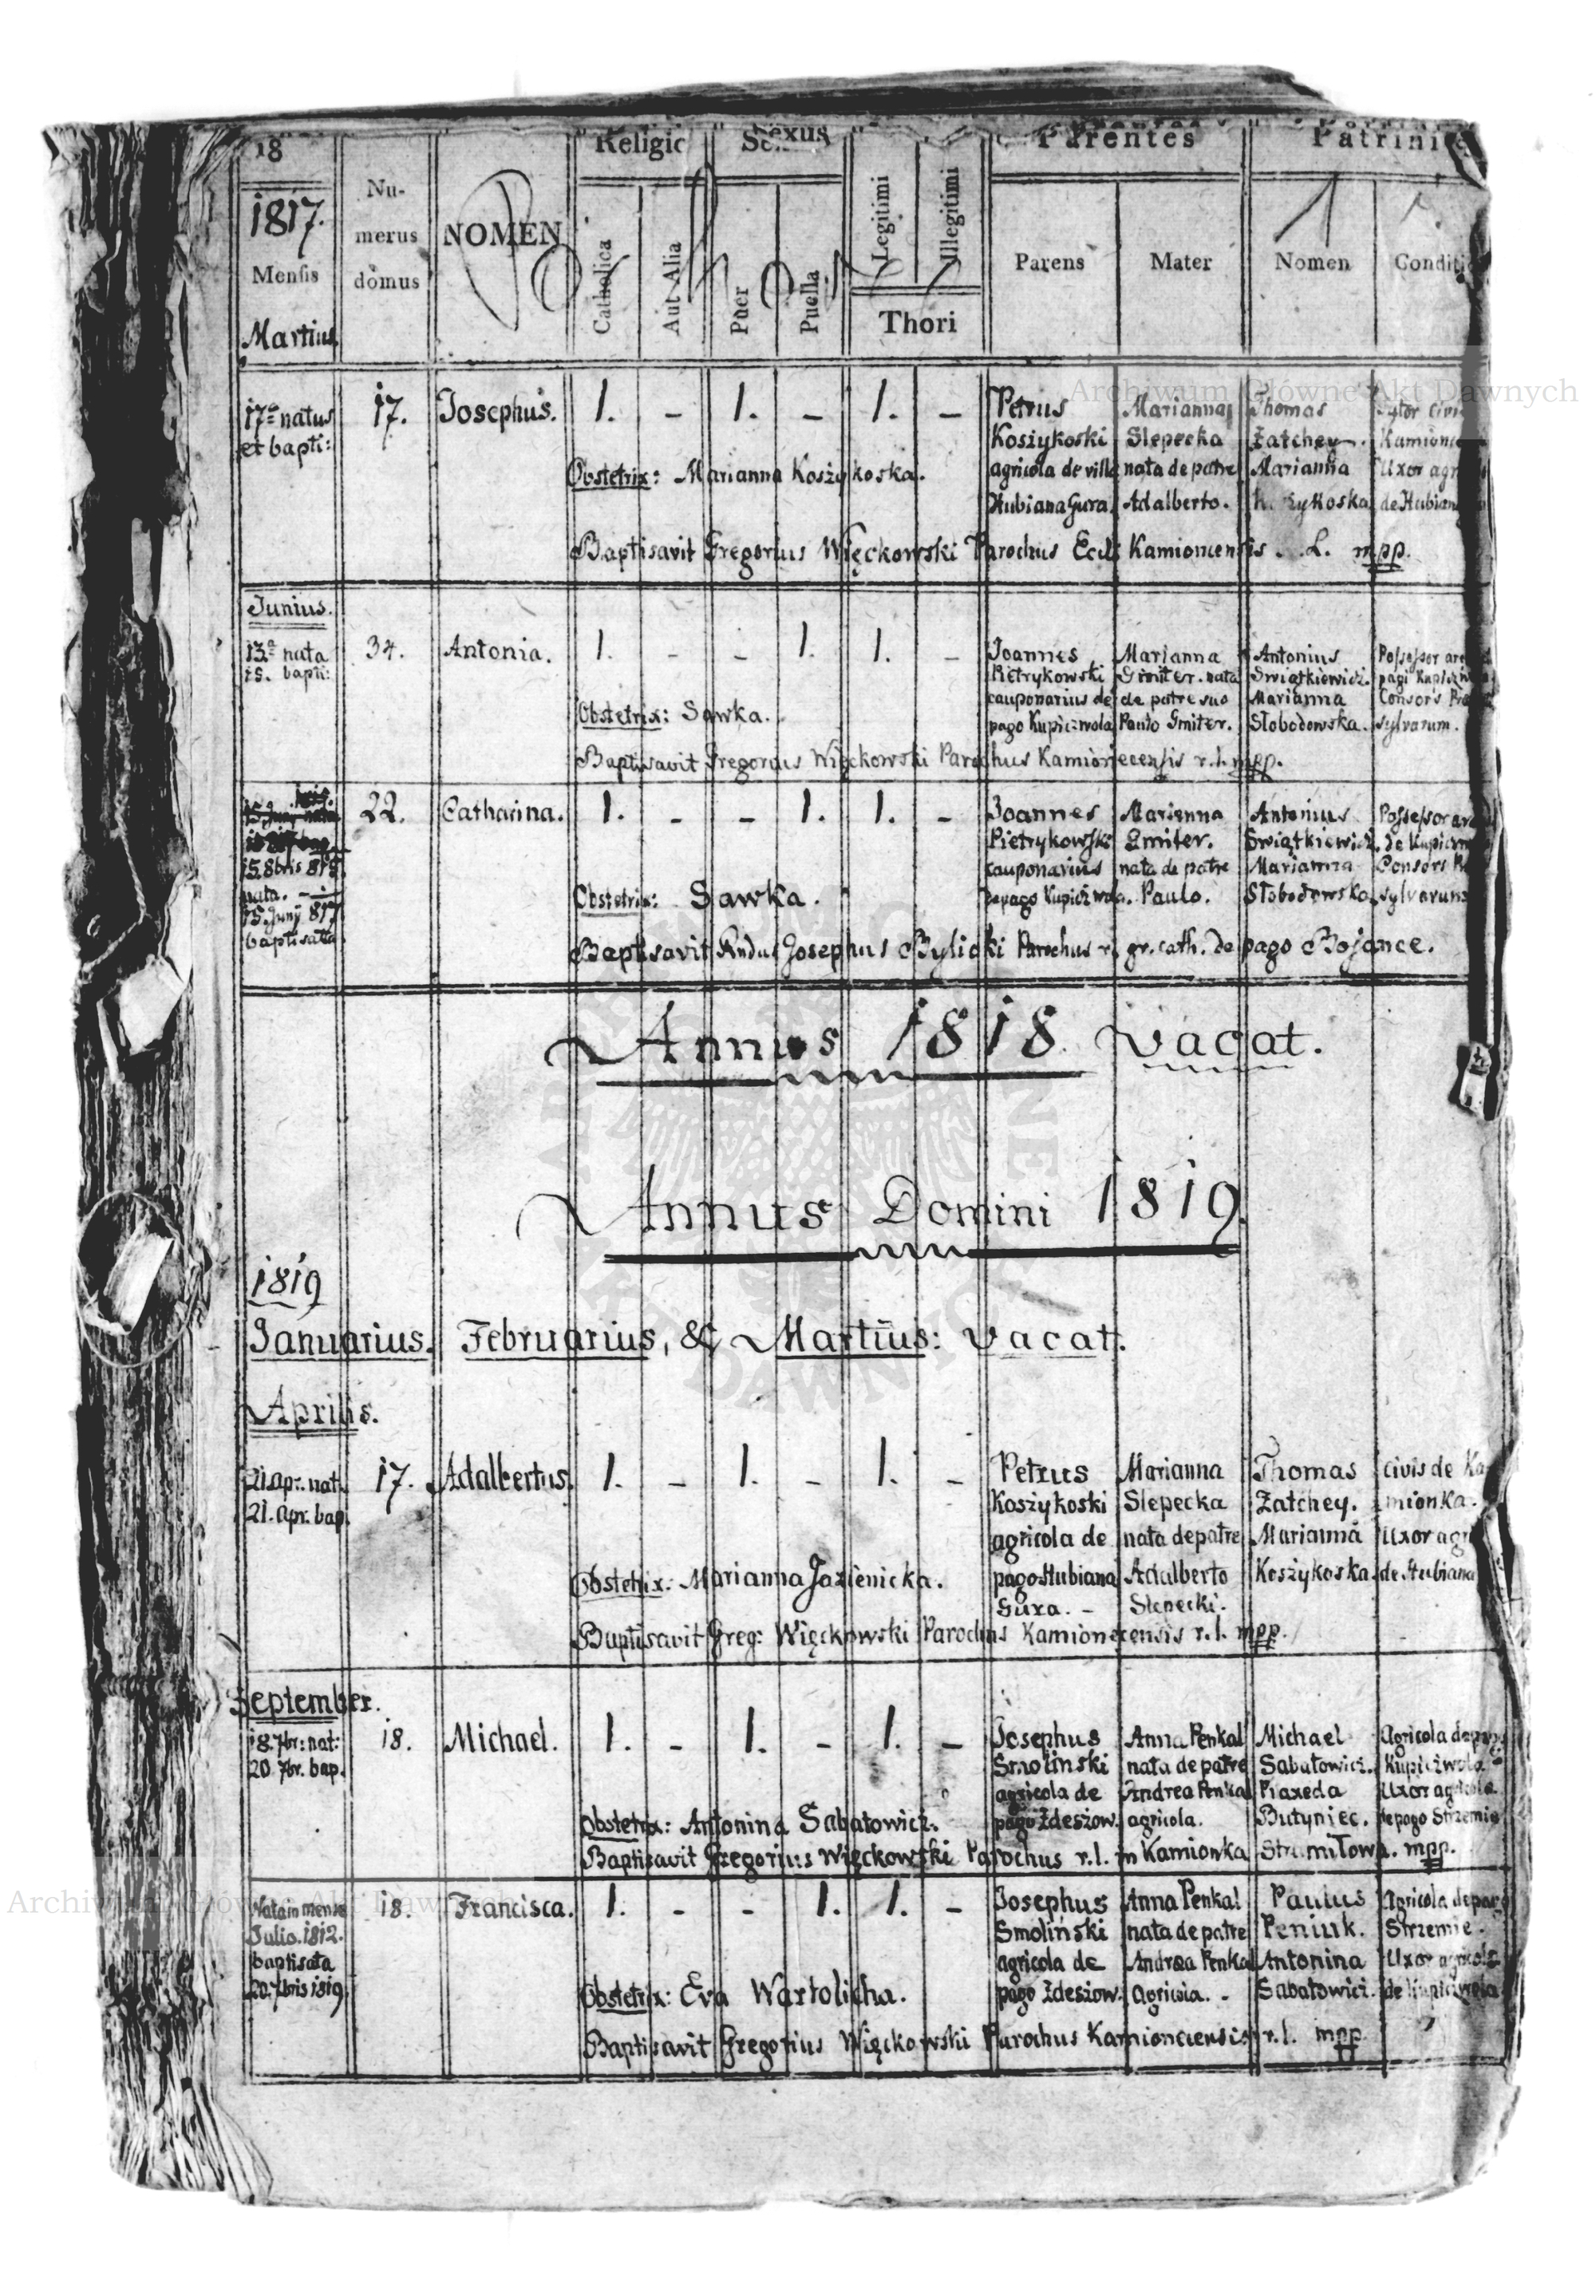 18
Religio
Sexus
Parentes
Patrini
1817.
Mensis
Martius
Nu-
merus
domus
NOMEN
Catholica
Aut Alia
Puer
Puella
Legitimi
Illegitimi
Thori
Parens
Mater
Nomen
Conditio
Archiwum Główne Akt Dawnych
17a natus 17. Josephus. 1. – 1. – 1. – Petrus Marianna Thomas
et bapti: Koszykoski Slepecka Żatchey.
agricola de villa nata de patre Marianna Uxor
Obstetrix: Marianna Koszykoska.
Hubiana Gura. Adalberto.
Baptisavit Gregorius Więckowski Parochus Eccl: mpp.
Junius.
13a nata 34. Antonia. 1. – – 1. 1. – Joannes Marianna Antonius Possessor
15. bapti: Pietrykowski Gmiter. nata Swiątkiewicz. pagi
cauponarius de de patre suo Marianna Consors
Obstetrix: Sawka.
pago Kupiczwola Paulo Gmiter. Słobodowska. sylvarum.
Baptisavit Gregorius Więckowski Parochus Kamionecensis r. l. mpp.
22. Catharina. 1. – – 1. 1. – Joannes Marianna Antonius Possessor
Pietrykowski Gmiter. Swiątkiewicz. de
15 8bris 815 cauponarius nata de patre Marianna Consors
nata.
Obstetrix: Sawka.
de pago Kupiczwola. Paulo. Słobodowska. sylvarum
15 Junÿ 817
baptisata
Baptisavit Rndus Josephus Bylicki Parochus r. gr. cath. de pago Bojance.
Annus 1818. vacat.
Annus Domini 1819.
1819
Januarius. Februarius, & Martius: vacat.
Aprilis.
21 apr. nat. 17. Adalbertus. 1. – 1. – 1. – Petrus Marianna Thomas civis de Ka-
21. apr. bap. Koszykoski Slepecka Żatchey. mionka.
agricola de nata de patre Marianna Uxor
Obstetrix: Marianna Jazienicka.
pago Hubiana Adalberto Koszykoska. de Hubiana
Gura. – Slepecki.
Baptisavit Greg: Więckowski Parochus Kamionecensis r. l. mpp.
September.
18. 7br: nat: 18. Michael. 1. – 1. – 1. – Josephus Anna Penkal Michael Agricola de pago
20. 7br. bap. Smolinski nata de patre Sabatowicz. Kupiczwola
agricola de Andrea Penkal Praxeda Uxor agricola
Obstetrix: Antonina Sabatowicz.
pago Żdeszow. agricola. Butyniec. de pago Strzemie
Baptisavit Gregorius Więckowski Parochus r. l. in Kamionka Strumiłowa. mpp.
Archiwum Główne Akt Dawnych
Nata in mense 18. Francisca. 1. – – 1. 1. – Josephus Anna Penkal Paulus Agricola de pago
Julio. 1812. Smoliński nata de patre Peniuk. Strzemie.
baptisata agricola de Andrea Penkal Antonina Uxor agricola
20. 7bris 1819
Obstetrix: Eva Wartolicha.
pago Żdeszow. Agricola. – Sabatowicz. de Kupiczwola
Baptisavit Gregorius Więckowski Parochus Kamioncensis r. l. mpp.